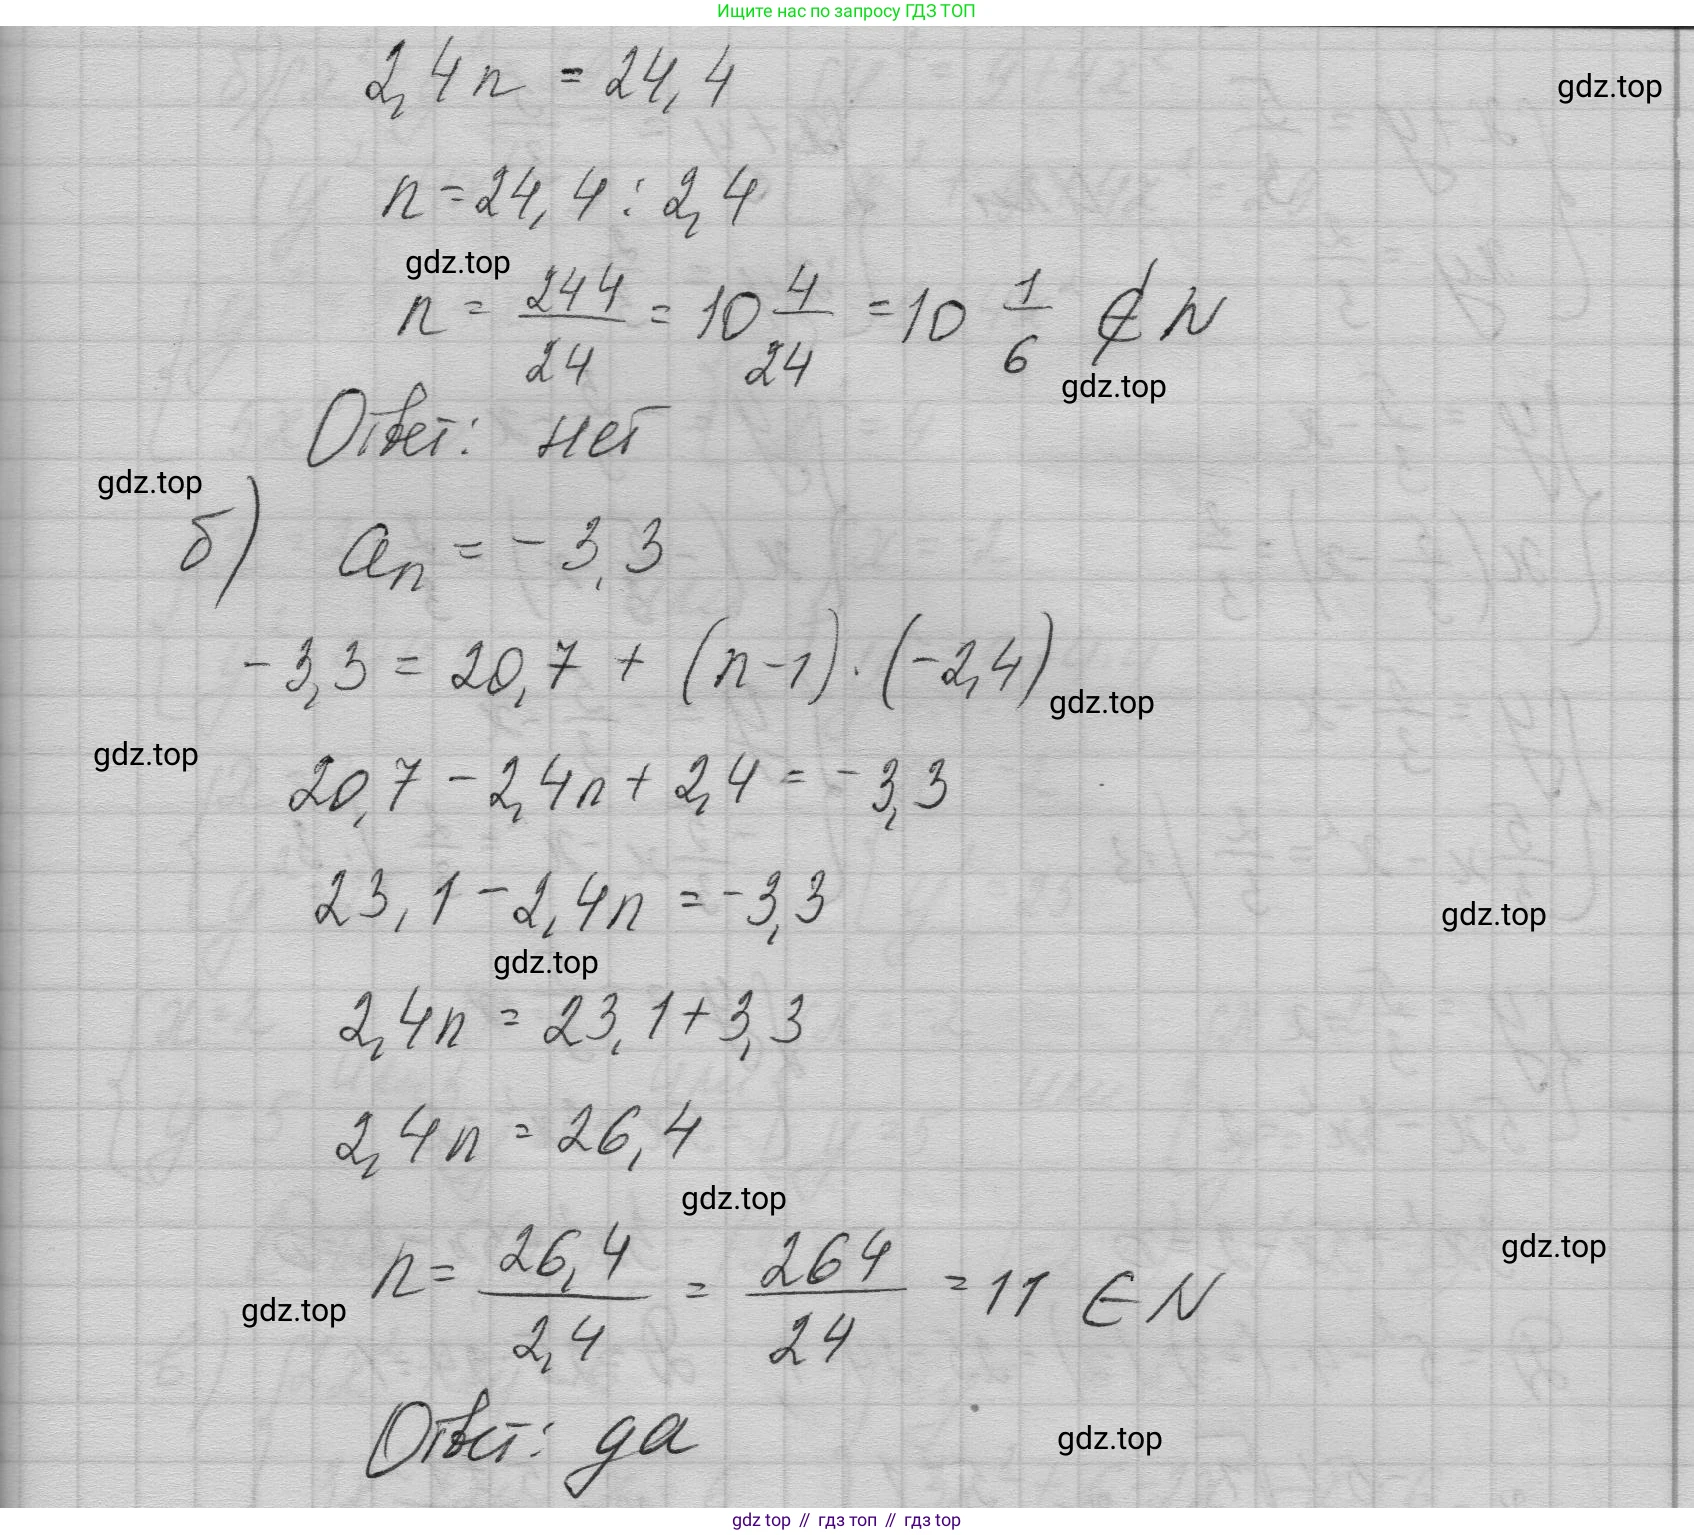 Ищите нас по запросу ГДЗ ТОП
2,4n = 24,4
gdz.top
n = 24,4 : 2,4
gdz.top
n = 244/24 = 10 4/24 = 10 1/6 ∉ N
gdz.top
Ответ: нет
gdz.top
б) aₙ = -3,3
-3,3 = 20,7 + (n-1)·(-2,4)
gdz.top
gdz.top
20,7 - 2,4n + 2,4 = -3,3
23,1 - 2,4n = -3,3
gdz.top
gdz.top
2,4n = 23,1 + 3,3
2,4n = 26,4
gdz.top
gdz.top
n = 26,4/2,4 = 264/24 = 11 ∈ N
gdz.top
Ответ: да
gdz.top
gdz top // гдз топ // gdz top